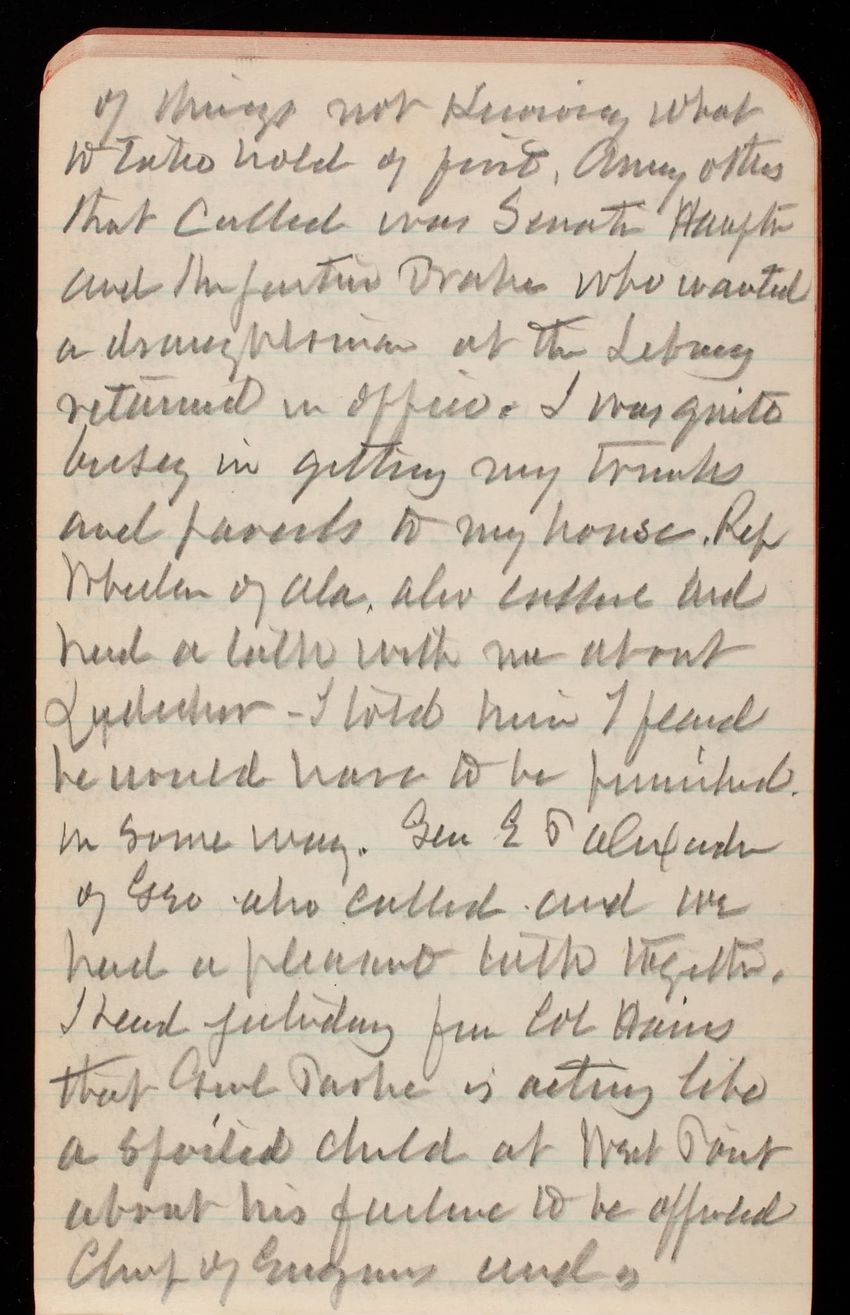 of things not Knowing what
to take hold of first. Among others
that Called was Senator Hampton
and Drake who wanted
a at the Library
returned in office. I was quite
busy in getting my trunks
and parcels to my house. Rep
Wheeler of Ala. also called and
had a talk with me about
- I told him I feared
he would have to be punished
in some way. Gen E P Alexander
of Geo also called and we
had a pleasant talk together.
I heard yesterday from Col Hains
that Genl Parke is acting like
a spoiled child at West Point
about his failure to be appointed
Chief of Engineers and is